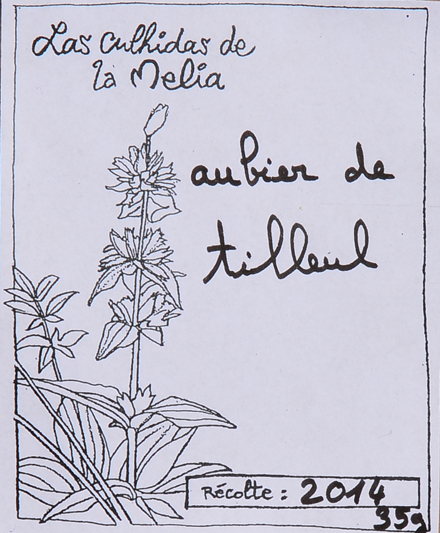 Las culhidas de
la Melia
aubier de
tilleul
Récolte : 2014
35g